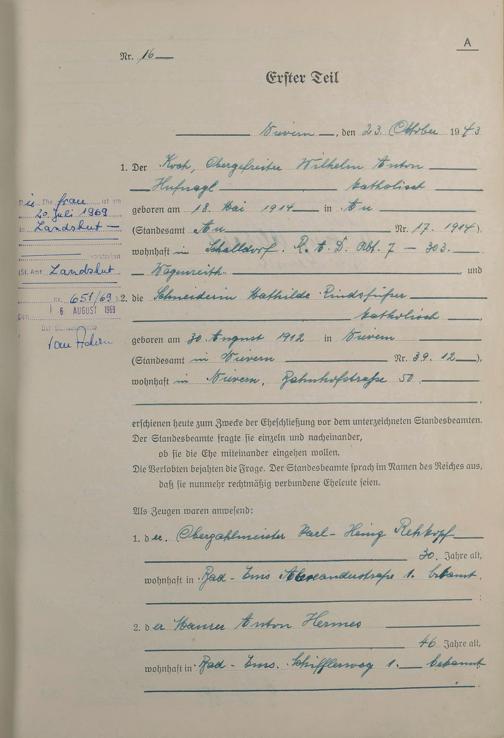 A
Nr. 16
Erster Teil
Nievern, den 23. Oktober 1943
1. Der Koch, Obergefreiter Wilhelm Anton
Hufnagl katholisch
geboren am 18. Mai 1914 in Au
(Standesamt Au Nr. 17. 1914)
wohnhaft in Schalldorf. R. A. D. Abt. 7 – 303.
und
2. die Schneiderin Mathilde
katholisch
geboren am 30. August 1912 in Nievern
(Standesamt in Nievern Nr. 39. 12)
wohnhaft in Nievern, Bahnhofstraße 50
erschienen heute zum Zwecke der Eheschließung vor dem unterzeichneten Standesbeamten.
Der Standesbeamte fragte sie einzeln und nacheinander,
ob sie die Ehe miteinander eingehen wollen.
Die Verlobten bejahten die Frage. Der Standesbeamte sprach im Namen des Reiches aus,
daß sie nunmehr rechtmäßig verbundene Eheleute seien.
Als Zeugen waren anwesend:
1. der Oberzahlmeister Karl-Heinz Rehkopf
30 Jahre alt,
wohnhaft in Bad-Ems Alexanderstraße 1. bekannt
2. der Maurer Anton Hermes
46 Jahre alt,
wohnhaft in Bad-Ems. 1. bekannt
Frau ist am
20. Juli 1969
in Landshut
verstorben
(St. Amt Landshut
Nr. 651/69)
6. AUGUST 1969